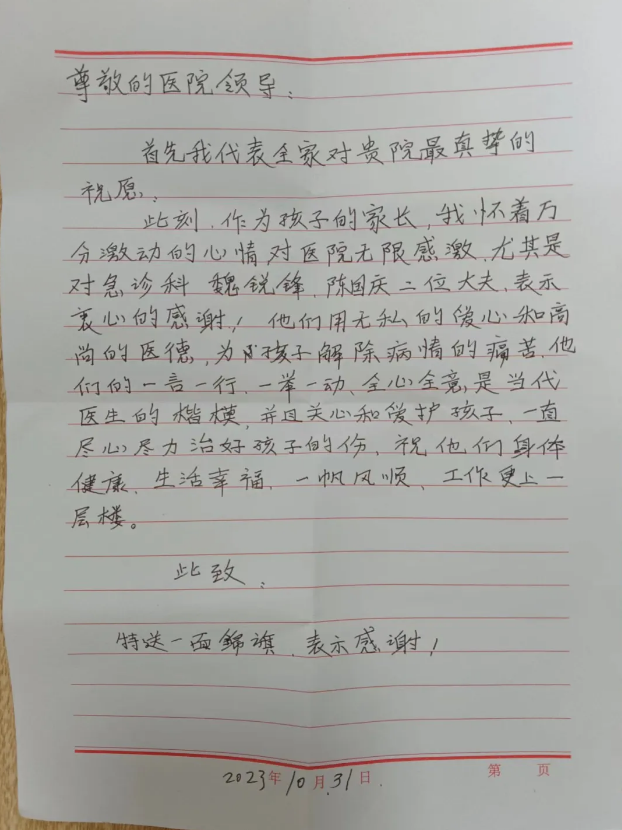 尊敬的医院领导：
首先我代表全家对贵院最真挚的
祝愿：
此刻，作为孩子的家长，我怀着万
分激动的心情对医院无限感激，尤其是
对急诊科 魏锐锋、陈国庆二位大夫，表示
衷心的感谢！他们用无私的爱心和高
尚的医德，为小孩子解除病情的痛苦，他
们的一言一行，一举一动，全心全意，是当代
医生的楷模，并且关心和爱护孩子，一直
尽心尽力治好孩子的伤，祝他们身体
健康、生活幸福、一帆风顺、工作更上一
层楼。
此致：
特送一面锦旗，表示感谢！
2023年10月31日
第 页